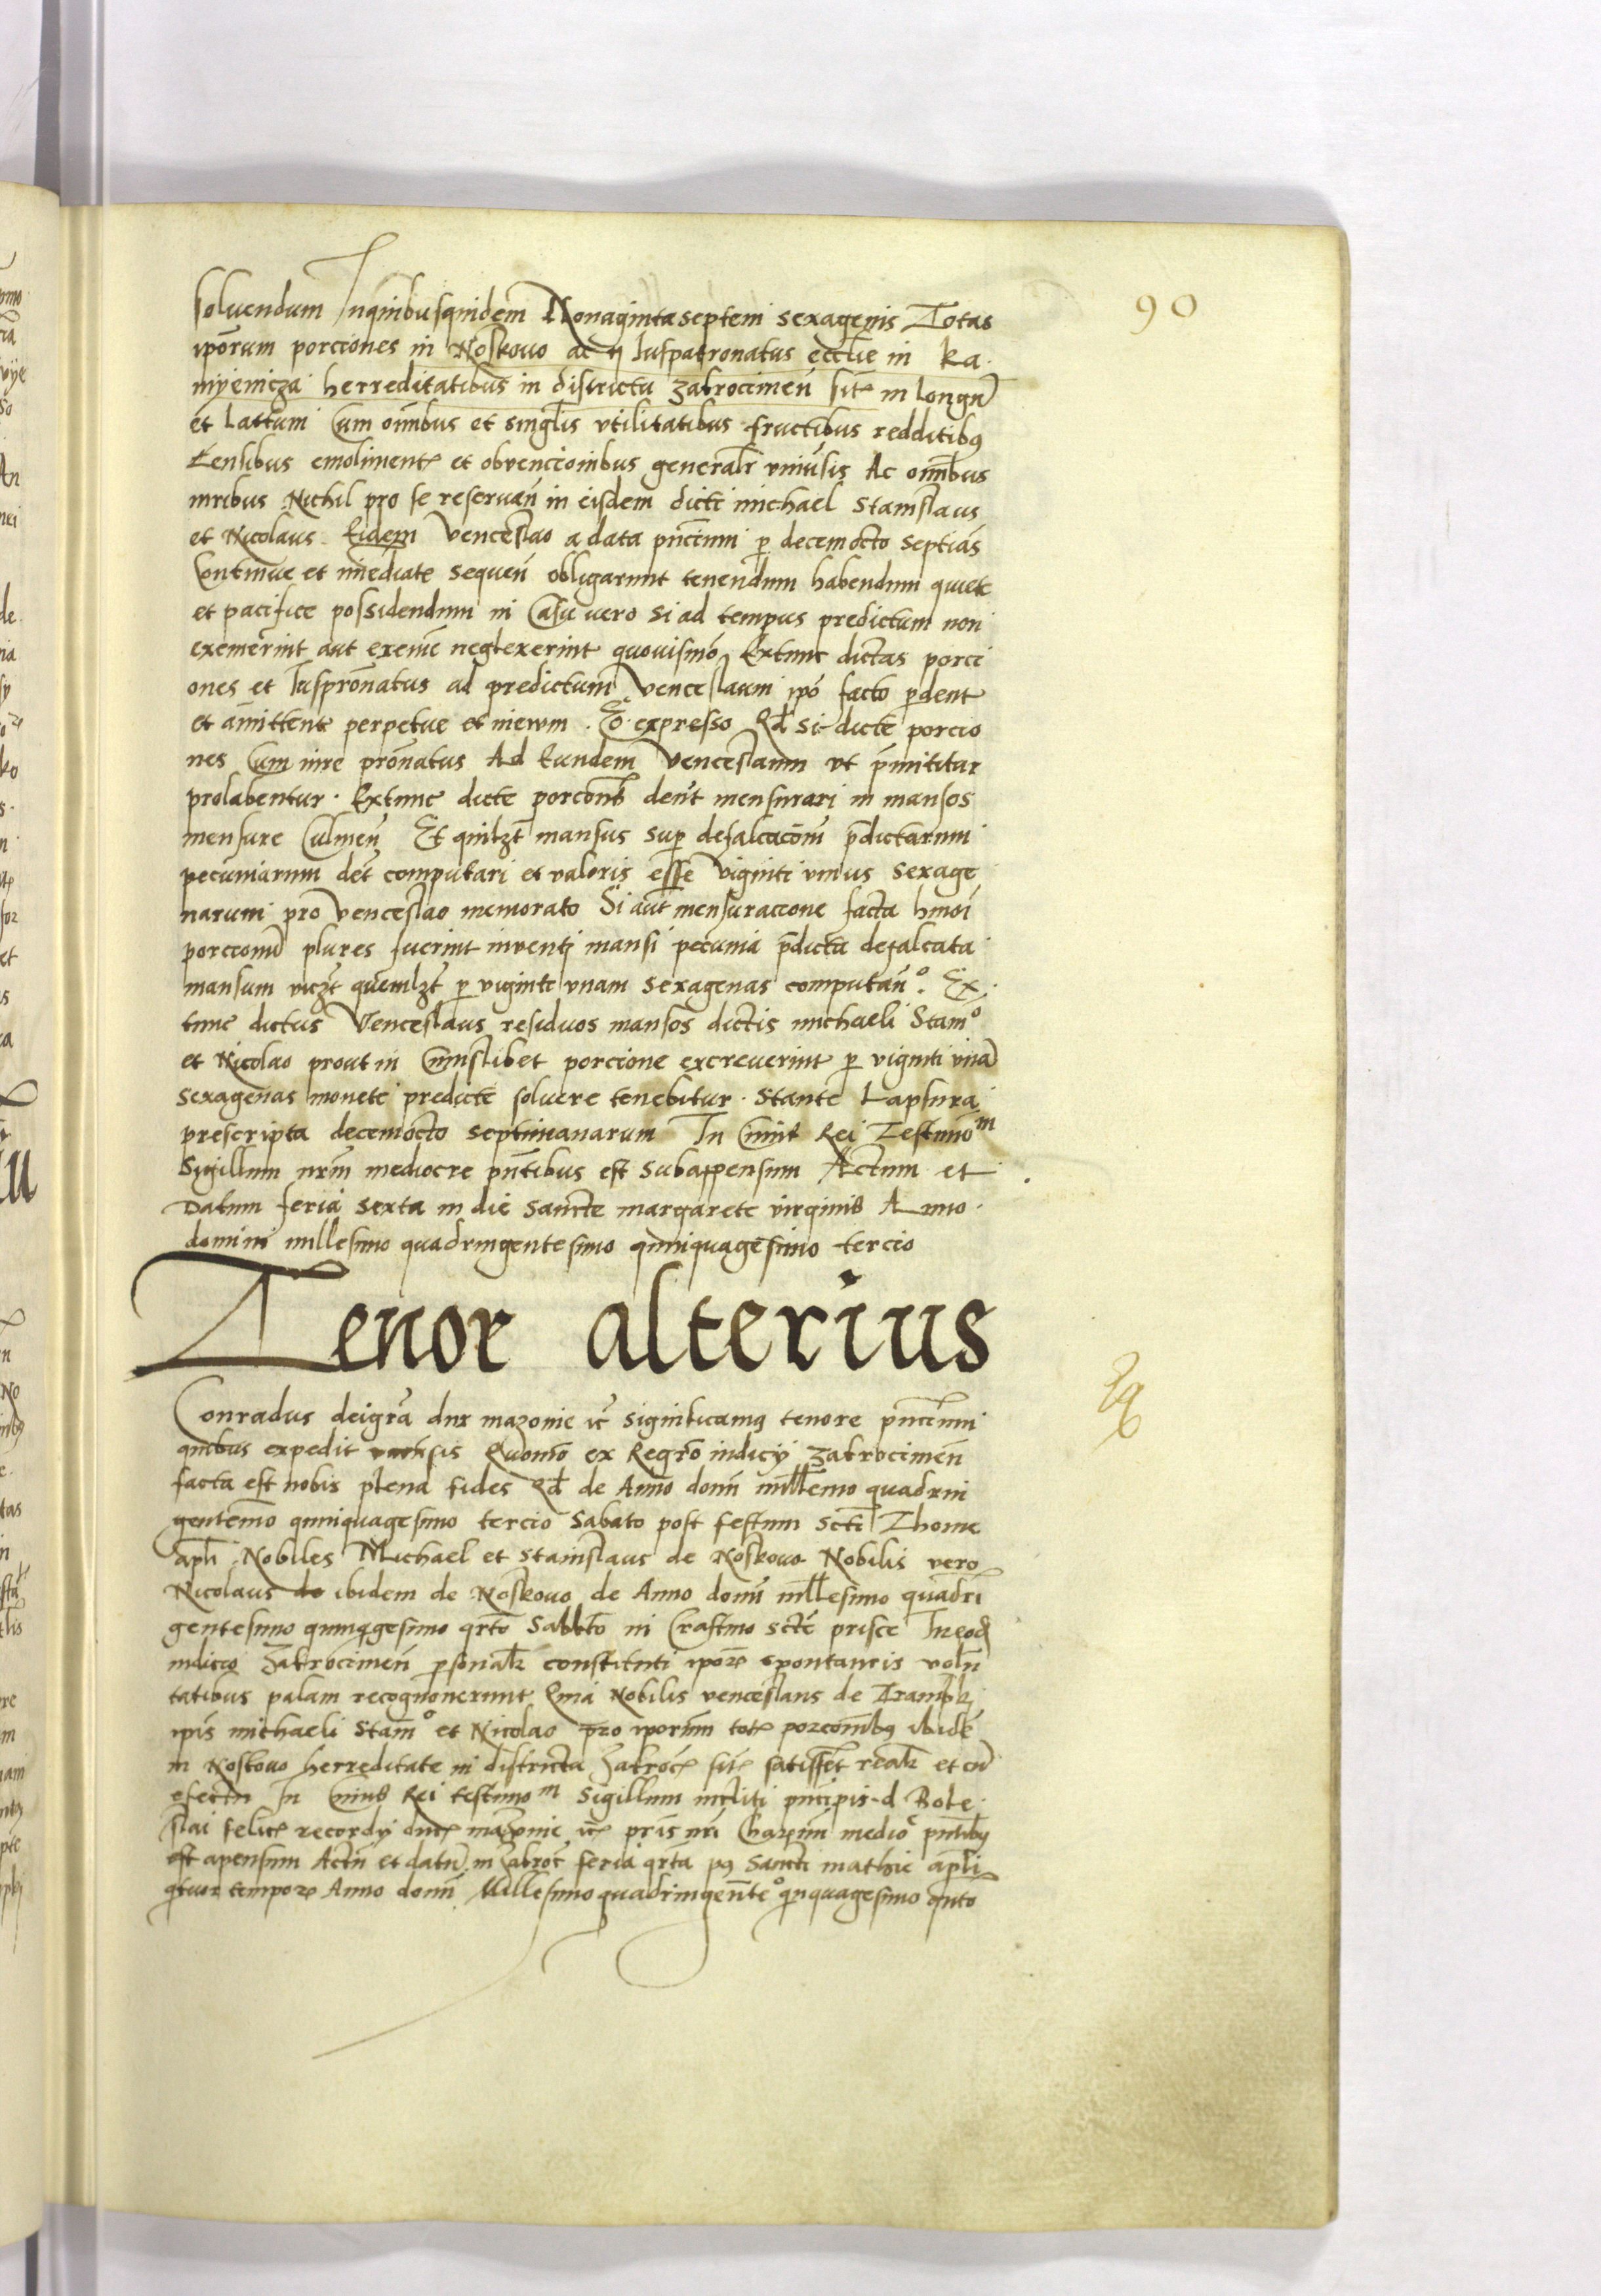 90
soluendum Inquibusquidem Nonagintaseptem sexagenis Totas
ipōrum porciones in Noskouo ac Iuspatronatus eccl̄ie in ka
myenicza herreditatibus in districtu zakrocimen̄ sit in longū
et lattum Cum oīmbus et singlis vtilitatibus fructibus redditibus
Censibus emoliment et obvencioīnbus generalr vniūsis Ac omībus
iuribus Nichil pro se reseruan̄ in eisdem dicti michael Stanislaus
et Nicolaus Eidem Venceslao a data pn̄cium p decemocto septias
Continue et imediate sequen̄ obligarunt tenendum habendum quiete
et pacifice possidendum in Casu uero si ad tempus predictum non
exemērint aut exeme neglexerint quouismō Extunc dictas porci
ones et Iuspronatus ad predictum Venceslaum ipō facto pdent
et amittent perpetue et in eum . Eo expresso Qd si dicte porcio
nes Cum iure prōnatus Ad Eundem Venceslaum vt pmititur
prolabentur . Extunc dicte porcones den̄t mensurari in mansos
mensure Culmen̄ Et quilzt mansus sup defalcacōm p̄dictarum
pecuniarum det computari et valoris esse viginti vnius sexage
narum pro Venceslao memorato Si aūt mensuracione facta hmōi
porcionū plures fuerint inventi mansi pecunia p̄dicta defalcata
mansum viczt quemlzt p viginti vnam sexagenas computan̄º . Ex
tunc dictus Venceslaus residuos mansos dictis michaeli Stamº
et Nicolao prout in Cuiuslibet porcione excreuerint p viginti vnā
sexagenas monete predicte soluere tenebitur . Stante Lapsura
prescripta decemocto septimanarum In Cuius Rei Testimom
Sigillum nrm̄ mediocre pn̄tibus est subappensum Actum et
Datum feria sexta in die sancte margarete virginis Anno
domini millesimo quadringentesimo quinquagesimo tercio
Tenor alterius
Conradus deigrā dux mazouie ic̄ significamus tenore pn̄cium
quibus expedit vniūsis Quomō ex Regrō iudicij zakrocimen̄
facta est nobis plena fides Qd de Anno domi millemo quadrin
gentemo quinquagesimo tercio Sabato post festum Scti Thome
apli Nobiles Michael et Stanislaus de Noskouo Nobilis vero
Nicolaus de ibidem de Noskouo de Anno domi millesimo quadri
gentesimo quinqgesimo qrto Sabbto in Crastino scte prisce Ineod
iudicio zakrocimen̄ psonalr constituti ipor spontaneis volun
tatibus palam recognouerunt Quia Nobilis venceslaus de
ipis michaeli Stamº et Nicolao pro iporum tot porcomb ibidē
in Noskouo herreditate in districtu Zakroc sit satisfet realr et cū
efectu In Cuius Rei testimom Sigillum incliti pncipis d Bole
slai felic recordij ducis mazouie ic pris nri Charum medioc pntibus
est apensum Actū et datū in Zakroc feria qrta pº Sancti mathie apli
qtuor tempor Anno domi Millesimo quadringenteº quinquagesimo qnto